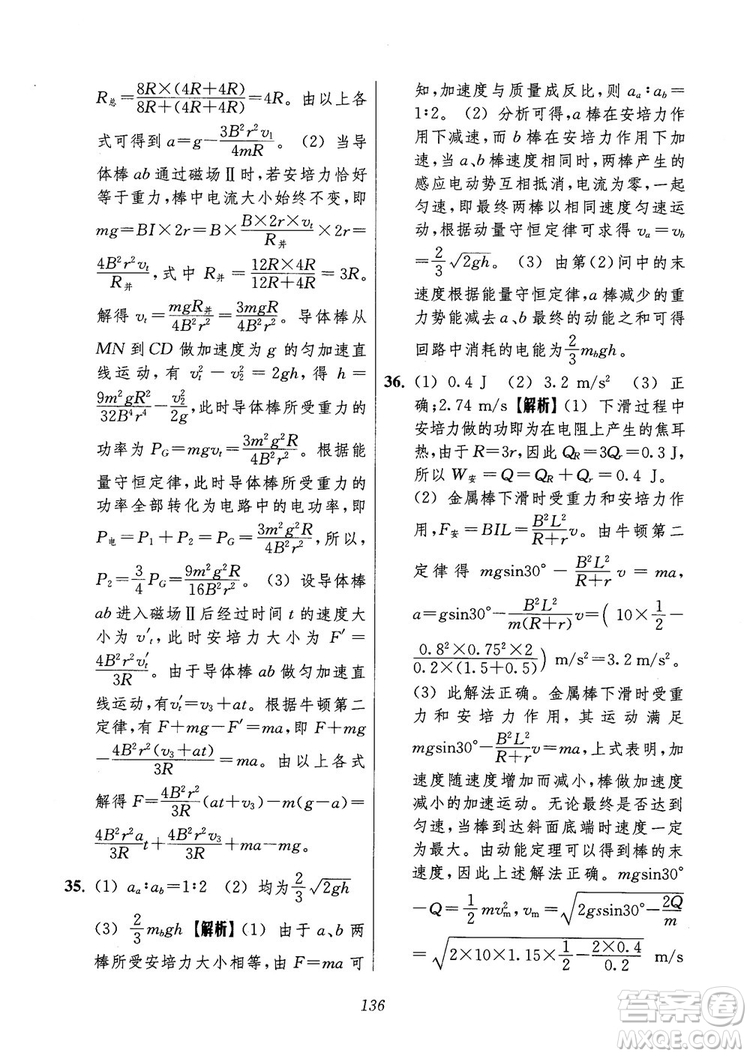 R总=8R×(4R+4R)/8R+(4R+4R)=4R。由以上各
式可得到 a=g-3B²r²v₁/4mR。(2) 当导
体棒 ab 通过磁场Ⅱ时,若安培力恰好
等于重力,棒中电流大小始终不变,即
mg=BI×2r=B×B×2r×vₜ/R并×2r=
4B²r²vₜ/R并,式中 R并=12R×4R/12R+4R=3R。
解得 vₜ=mgR并/4B²r²=3mgR/4B²r²。导体棒从
MN 到 CD 做加速度为 g 的匀加速直
线运动,有 vₜ²-v₂²=2gh,得 h=
9m²gR²/32B⁴r⁴-v₂²/2g,此时导体棒所受重力的
功率为 P_G=mgvₜ=3m²g²R/4B²r²。根据能
量守恒定律,导体棒所受重力的
功率全部转化为电路中的电功率,即
P电=P₁+P₂=P_G=3m²g²R/4B²r²,所以,
P₂=3/4P_G=9m²g²R/16B²r²。(3) 设导体棒
ab 进入磁场Ⅱ后经过时间 t 的速度大
小为 v′ₜ,此时安培力大小为 F′=
4B²r²v′ₜ/3R。由于导体棒 ab 做匀加速直
线运动,有 v′ₜ=v₃+at。根据牛顿第二
定律,有 F+mg-F′=ma,即 F+mg
-4B²r²(v₃+at)/3R=ma。由以上各式
解得 F=4B²r²/3R(at+v₃)-m(g-a)=
4B²r²a/3Rt+4B²r²v₃/3R+ma-mg。
35. (1) aₐ∶a_b=1∶2 (2) 均为2/3√2gh
(3) 2/3m_bgh【解析】(1) 由于 a、b 两
棒所受安培力大小相等,由 F=ma 可
知,加速度与质量成反比,则 aₐ∶a_b=
1∶2。(2) 分析可得,a 棒在安培力作
用下减速,而 b 棒在安培力作用下加
速,当 a、b 棒速度相同时,两棒产生的
感应电动势互相抵消,电流为零,一起
匀速,即最终两棒以相同速度匀速运
动,根据动量守恒定律可求得 vₐ=v_b
=2/3√2gh。(3) 由第(2)问中的末
速度根据能量守恒定律,a 棒减少的重
力势能减去 a、b 最终的动能之和可得
回路中消耗的电能为2/3m_bgh。
36. (1) 0.4 J (2) 3.2 m/s² (3) 正
确;2.74 m/s【解析】(1) 下滑过程中
安培力做的功即为在电阻上产生的焦耳
热,由于 R=3r,因此 Q_R=3Qᵣ=0.3 J,
所以 W安=Q=Q_R+Qᵣ=0.4 J。
(2) 金属棒下滑时受重力和安培力作
用,F安=BIL=B²L²/R+r v。由牛顿第二
定律得 mgsin30°-B²L²/R+r v=ma,
a=gsin30°-B²L²/m(R+r)v=(10×1/2-
0.8²×0.75²×2/0.2×(1.5+0.5)) m/s²=3.2 m/s²。
(3) 此解法正确。金属棒下滑时受重
力和安培力作用,其运动满足
mgsin30°-B²L²/R+r v=ma,上式表明,加
速度随速度增加而减小,棒做加速度
减小的加速运动。无论最终是否达到
匀速,当棒到达斜面底端时速度一定
为最大。由动能定理可以得到棒的末
速度,因此上述解法正确。mgssin30°
-Q=1/2mvₘ²,vₘ=√2gssin30°-2Q/m
=√2×10×1.15×1/2-2×0.4/0.2 m/s
136
答案圈